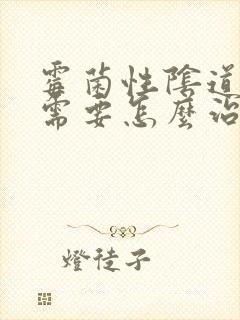 霉菌性陰道
需要怎麼治
燈徒子